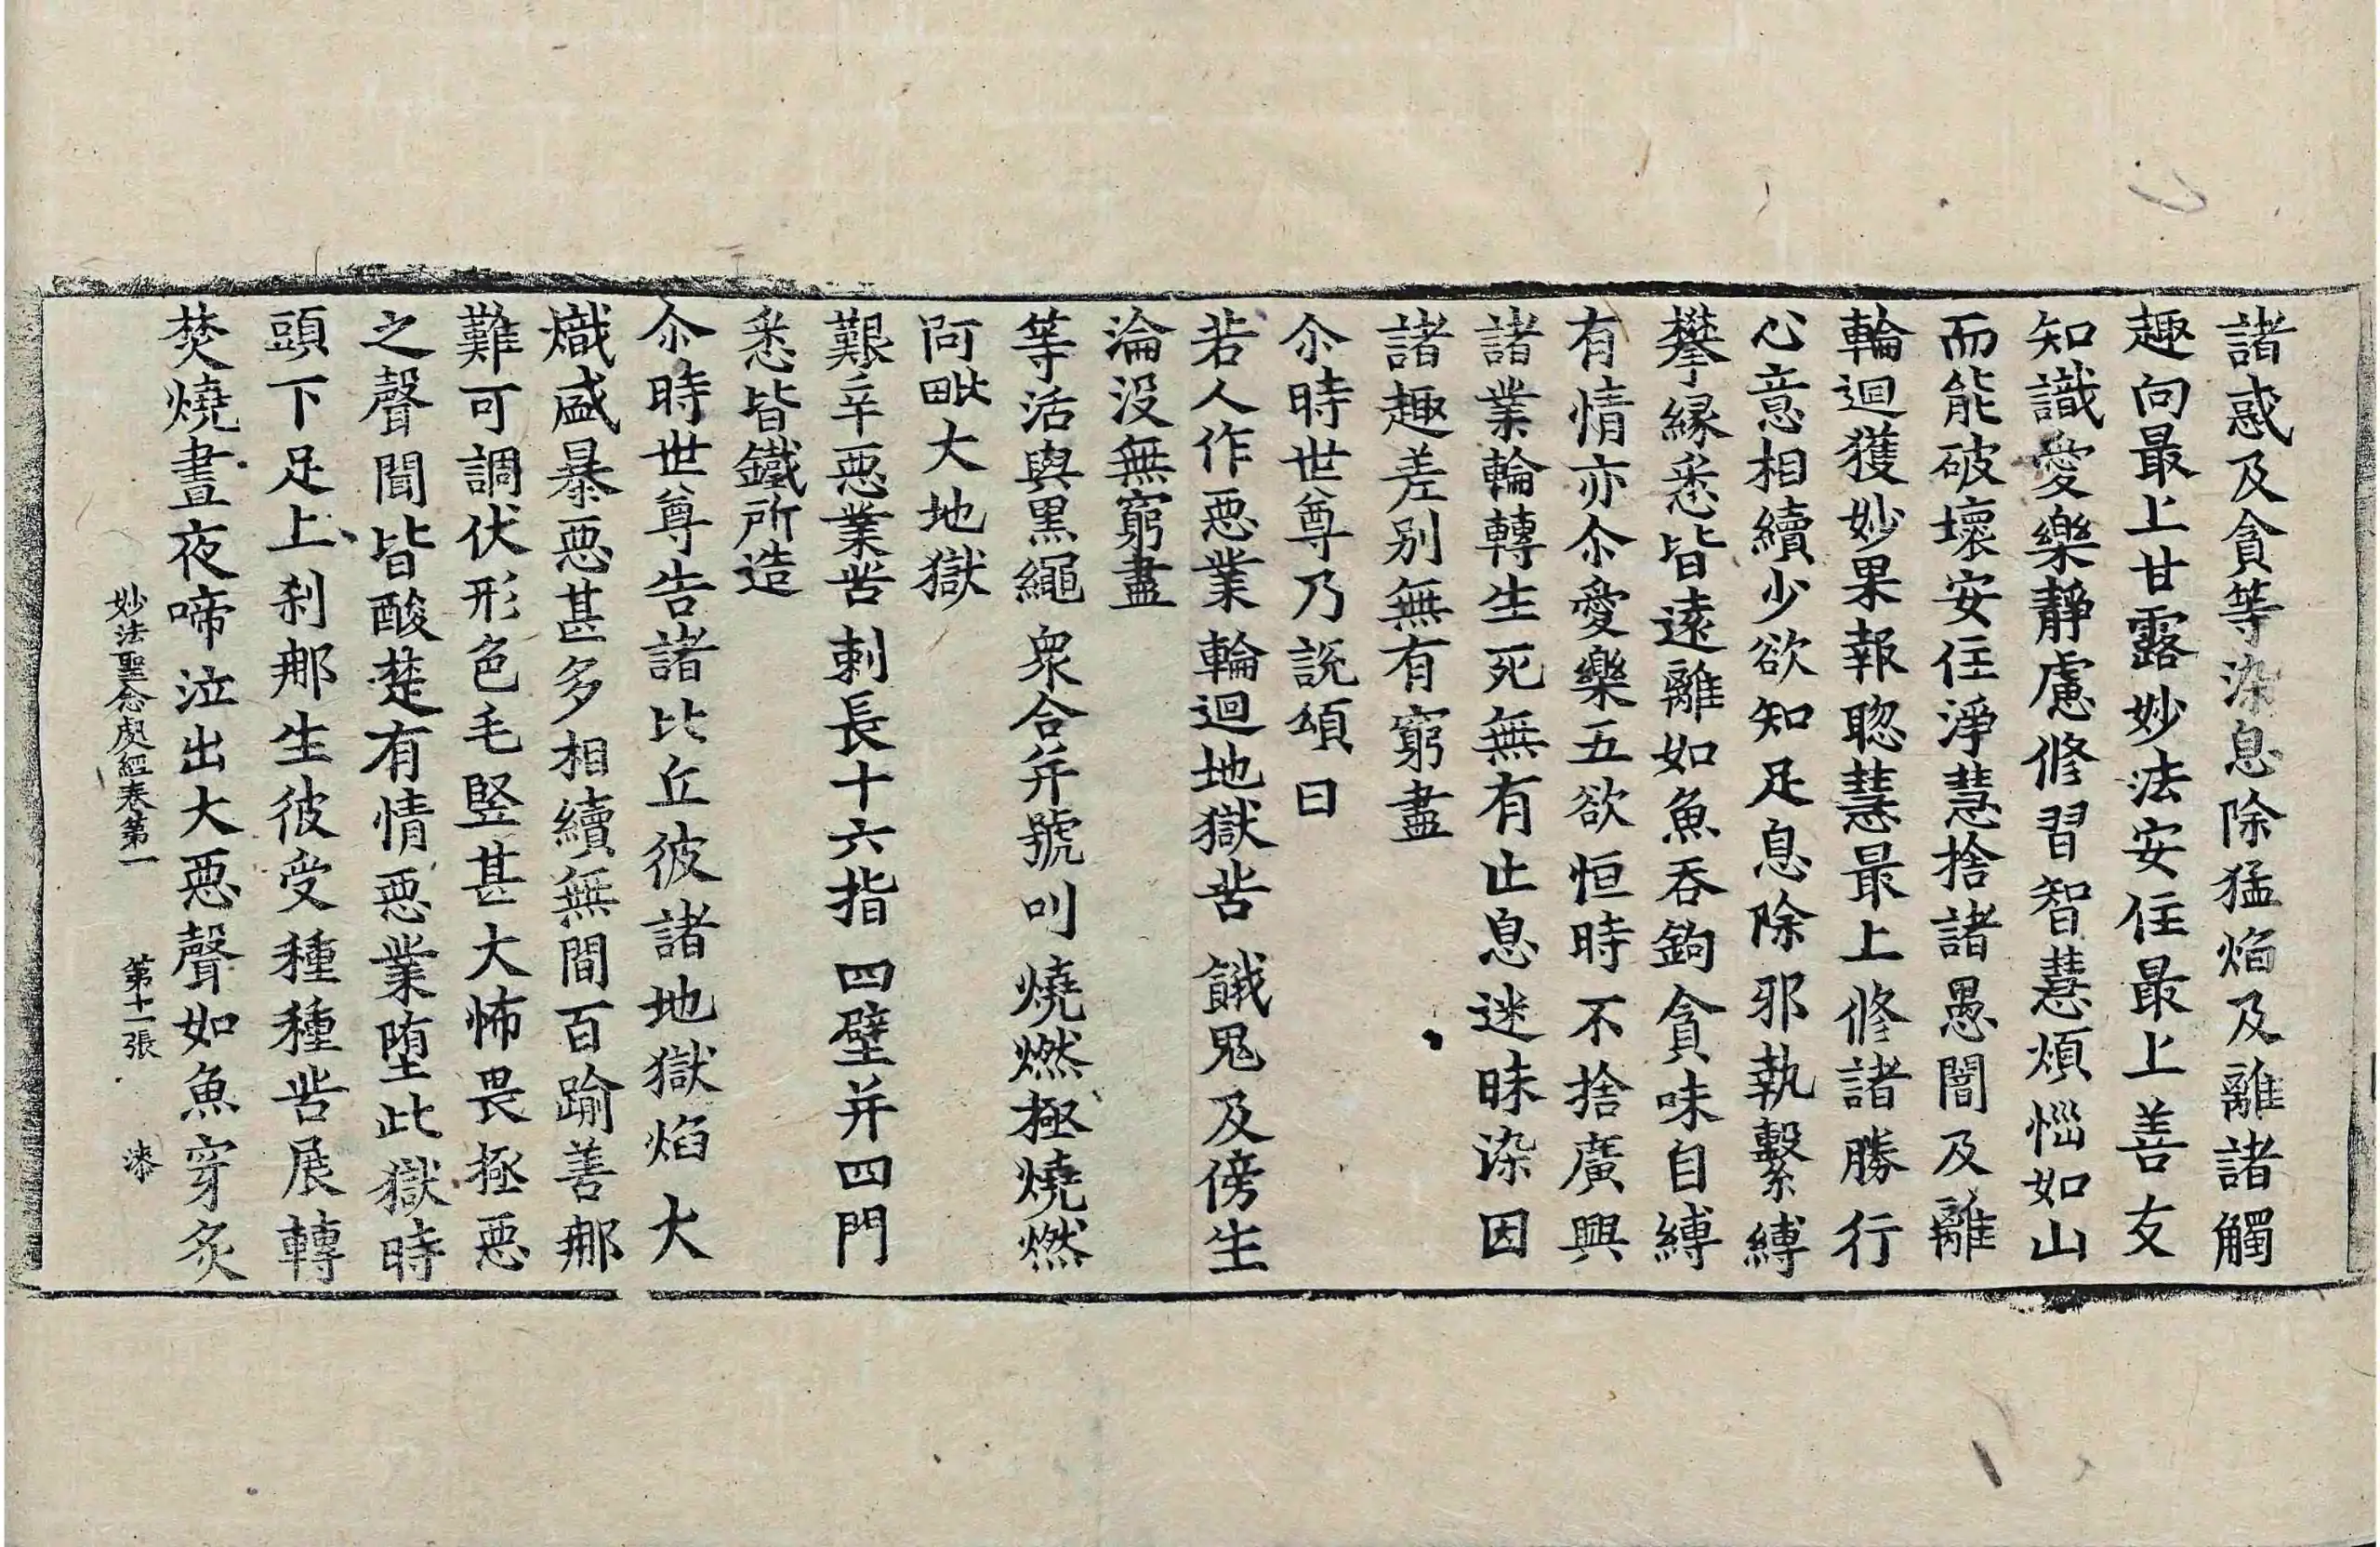 諸惑及貪等染息除猛焰及離諸觸
趣向最上甘露妙法安住最上善友
知識愛樂靜慮修習智慧煩惱如山
而能破壞安住淨慧捨諸愚闇及離
輪迴獲妙果報聦慧最上修諸勝行
心意相續少欲知足息除邪執繫縛
攀縁悉皆遠離如魚吞鉤貪味自縛
有情亦尒愛樂五欲恒時不捨廣興
諸業輪轉生死無有止息迷昧染因
諸趣差别無有窮盡
尒時世尊乃説頌曰
若人作惡業 輪迴地獄苦 餓鬼及傍生
淪没無窮盡
等活與黒繩 衆合并號叫 燒燃極燒燃
阿毗大地獄
艱辛惡業苦 刺長十六指 四壁并四門
悉皆鐵所造
尒時世尊告諸比丘彼諸地獄焰大
熾盛暴惡甚多相續無間百踰善那
難可調伏形色毛竪甚大怖畏極惡
之聲聞皆酸楚有情惡業墮此獄時
頭下足上刹那生彼受種種苦展轉
焚燒晝夜啼泣出大惡聲如魚穿炙
妙法聖念處經卷第一 第十一張 漆